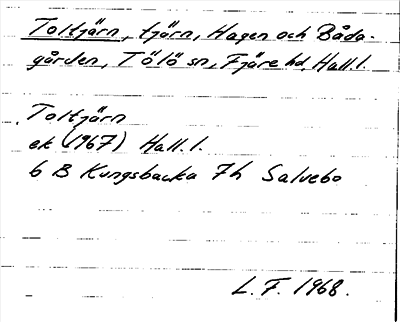 Toltjärn, tjärn, Hagen och Båda-
gården, Tölö sn, Fjäre hd, Hall. l.
Toltjärn
ek (1967) Hall. l.
6 B Kungsbacka 7h Salvebo
L. F. 1968.